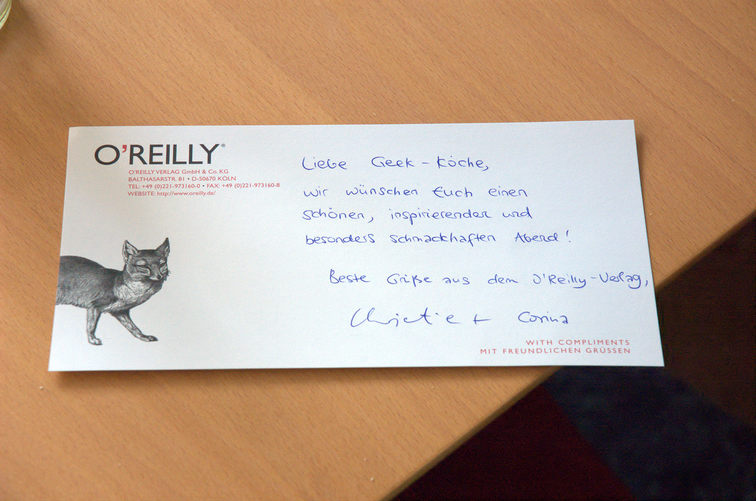 O'REILLY®
O'REILLY VERLAG GmbH & Co. KG
BALTHASARSTR. 81 • D-50670 KÖLN
TEL: +49 (0)221-973160-0 • FAX: +49 (0)221-973160-8
WEBSITE: http://www.oreilly.de/
Liebe Geek-Köche,
wir wünschen Euch einen
schönen, inspirierenden und
besonders schmackhaften Abend!
Beste Grüße aus dem O'Reilly-Verlag,
+ Corina
WITH COMPLIMENTS
MIT FREUNDLICHEN GRÜSSEN